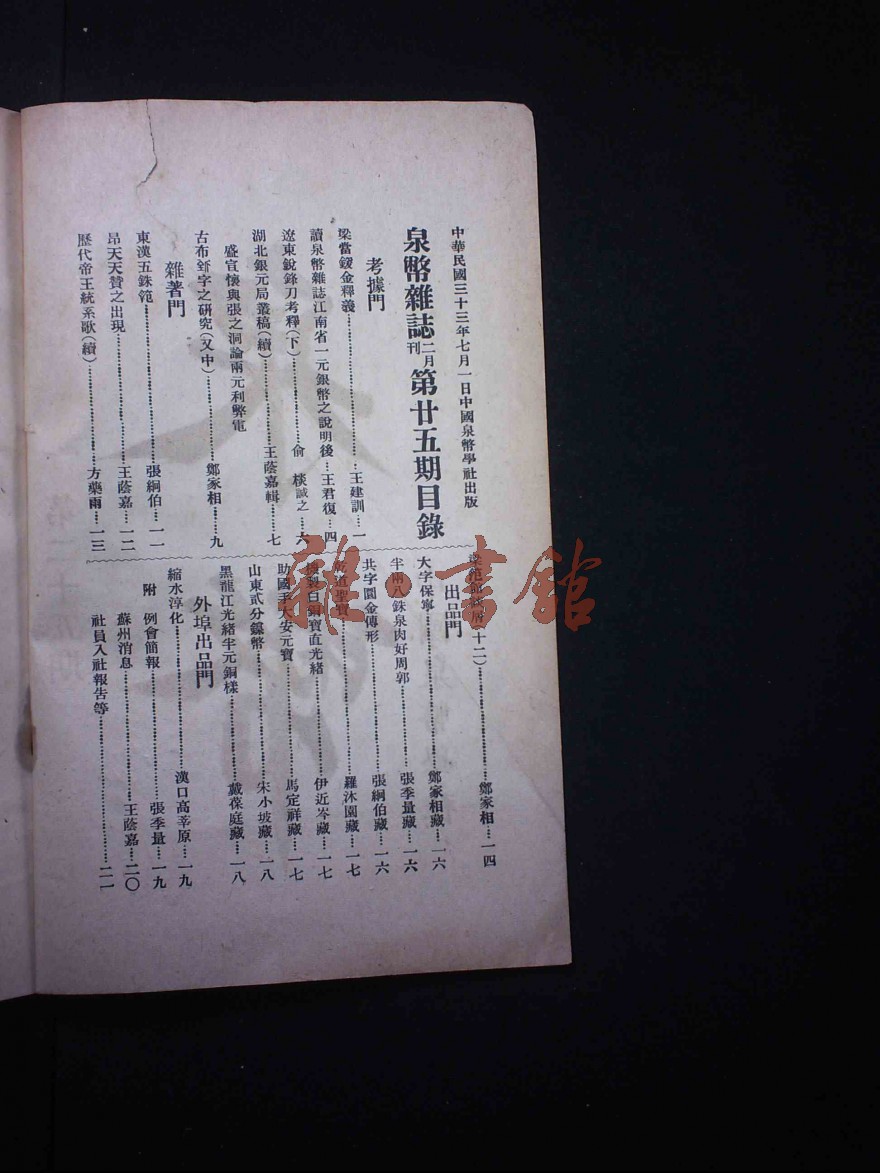 中華民國三十三年七月一日中國泉幣學社出版
泉幣雜誌二月刊第廿五期目錄
考據門
梁當鍰金釋義……王建訓…一
讀泉幣雜誌江南省一元銀幣之說明後…王君復…四
遼東銳鋒刀考釋(下)……俞棪誠之…六
湖北銀元局叢稿(續)……王蔭嘉輯……七
盛宣懷與張之洞論兩元利弊電
古布釿字之研究(又中)……鄭家相…九
雜著門
東漢五銖笵……張絅伯…一一
昂天天贊之出現……王蔭嘉…一二
歷代帝王統系歌(續)……方藥雨…一三
(十二)……鄭家相…一四
出品門
大字保寧……鄭家相藏…一六
半兩八銖泉肉好周郭……張季量藏…一六
共字圜金傳形……張絅伯藏…一六
乾道聖寶……羅沐園藏…一七
機製白銅寶直光緒……伊近岑藏…一七
助國手大安元寶……馬定祥藏…一七
山東貳分鎳幣……宋小坡藏…一八
黑龍江光緒半元銅樣……戴葆庭藏…一八
外埠出品門
縮水淳化……漢口高莘原…一九
附 例會簡報……張季量…一九
蘇州消息……王蔭嘉…二〇
社員入社報告等……二一
雜·書館